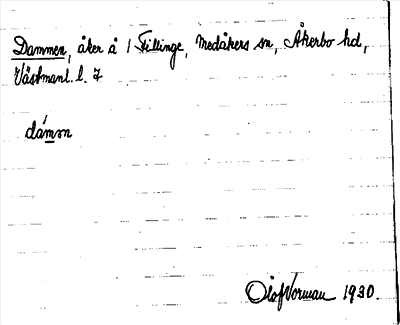 Dammen, åker å 1 Fillinge, Medåkers sn, Åkerbo hd,
Västmanl. l. 7
dámən
Olof Vorman 1930.